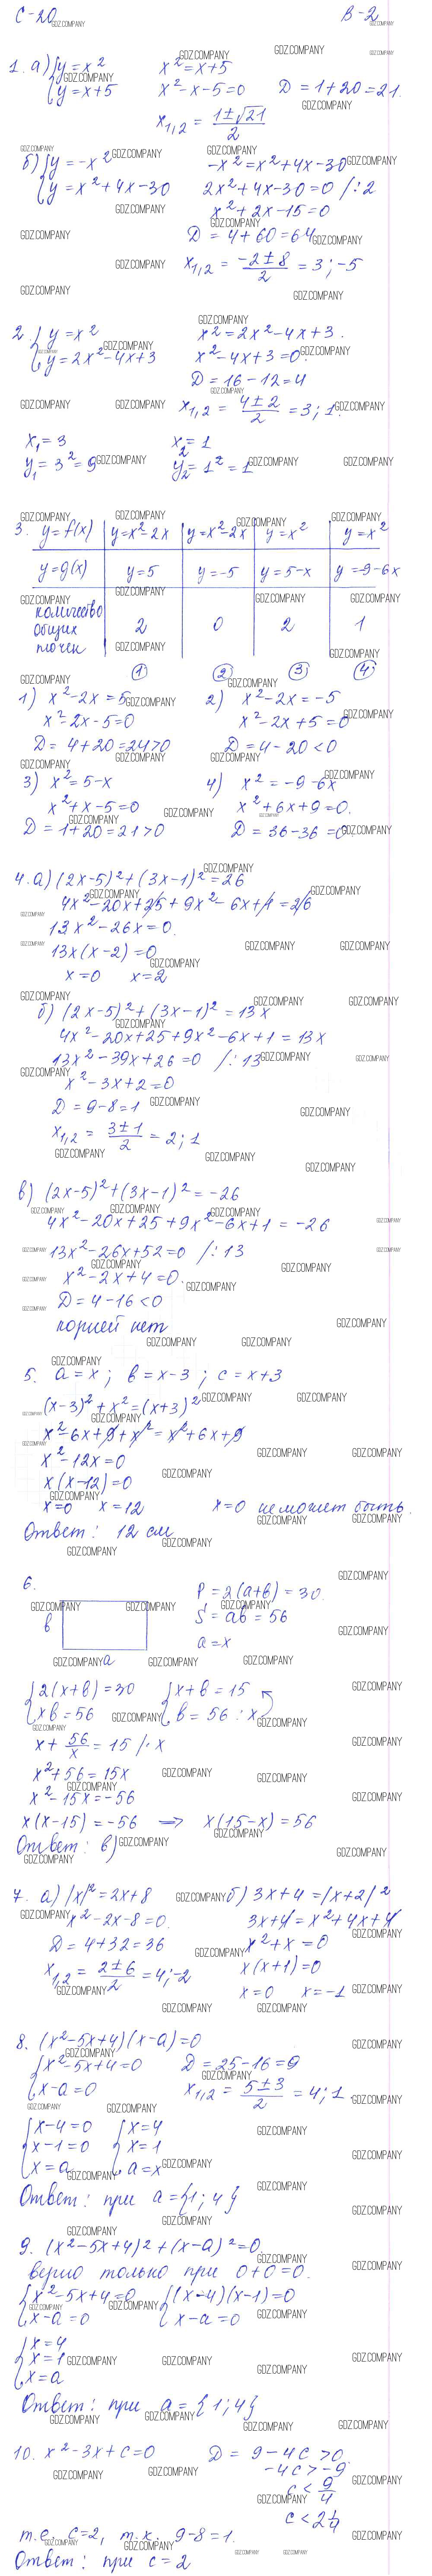 С-20 В-2
1. а) {y = x² x² = x+5
{y = x+5 x²-x-5=0 D = 1+20=21.
x₁,₂ = (1±√21)/2
б) {y = -x² -x² = x²+4x-30
{y = x²+4x-30 2x²+4x-30=0 /:2
x²+2x-15=0
D = 4+60=64
x₁,₂ = (-2±8)/2 = 3; -5
2. {y = x² x² = 2x²-4x+3.
{y = 2x²-4x+3 x²-4x+3=0.
D = 16-12=4
x₁,₂ = (4±2)/2 = 3; 1.
x₁ = 3 x₂ = 1
y₁ = 3² = 9 y₂ = 1² = 1
3. y=f(x) | y=x²-2x | y=x²-2x | y=x² | y=x²
y=g(x) | y=5 | y=-5 | y=5-x | y=-9-6x
количество общих точек | 2 | 0 | 2 | 1
① ② ③ ④
1) x²-2x=5 2) x²-2x=-5
x²-2x-5=0 x²-2x+5=0
D = 4+20=24>0 D = 4-20<0
3) x²=5-x 4) x²=-9-6x
x²+x-5=0 x²+6x+9=0.
D = 1+20=21>0 D = 36-36=0
4. а) (2x-5)²+(3x-1)²=26
4x²-20x+25+9x²-6x+1=26
13x²-26x=0.
13x(x-2)=0
x=0 x=2
б) (2x-5)²+(3x-1)²=13x
4x²-20x+25+9x²-6x+1=13x
13x²-39x+26=0 /:13
x²-3x+2=0
D = 9-8=1
x₁,₂ = (3±1)/2 = 2; 1
в) (2x-5)²+(3x-1)²=-26
4x²-20x+25+9x²-6x+1=-26
13x²-26x+52=0 /:13
x²-2x+4=0.
D = 4-16<0
корней нет
5. a=x; в=x-3; c=x+3
(x-3)²+x²=(x+3)²
x²-6x+9+x²=x²+6x+9
x²-12x=0
x(x-12)=0
x=0 x=12 x=0 не может быть.
Ответ: 12 см
6. P=2(a+в)=30.
в S=aв=56
a a=x
{2(x+в)=30 {x+в=15
{xв=56 {в=56:x
x+56/x=15 /·x
x²+56=15x
x²-15x=-56
x(x-15)=-56 ⟹ x(15-x)=56
Ответ: в)
7. а) |x|²=2x+8 б) 3x+4=|x+2|²
x²-2x-8=0. 3x+4=x²+4x+4
D = 4+32=36 x²+x=0
x₁,₂ = (2±6)/2 = 4; -2 x(x+1)=0
x=0 x=-1
8. (x²-5x+4)(x-a)=0
{x²-5x+4=0 D = 25-16=9
{x-a=0 x₁,₂ = (5±3)/2 = 4; 1.
{x-4=0 {x=4
{x-1=0 {x=1
{x=a {a=x
Ответ: при a={1; 4}
9. (x²-5x+4)²+(x-a)²=0.
верно только при 0+0=0.
{x²-5x+4=0 {(x-4)(x-1)=0
{x-a=0 {x-a=0
{x=4
{x=1
{x=a
Ответ: при a={1; 4}
10. x²-3x+c=0 D = 9-4c>0.
-4c>-9
c<9/4
c<2 1/4
т.е. c=2, т.к. 9-8=1.
Ответ: при c=2
GDZ.COMPANY